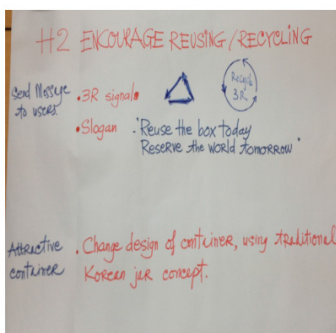 H2 ENCOURAGE REUSING/RECYCLING
Send Message
to users
• 3R signals
Recycle
3R
• Slogan : "Reuse the box today
Reserve the world tomorrow"
Attractive
container
• Change design of container, using traditional
Korean jar concept.